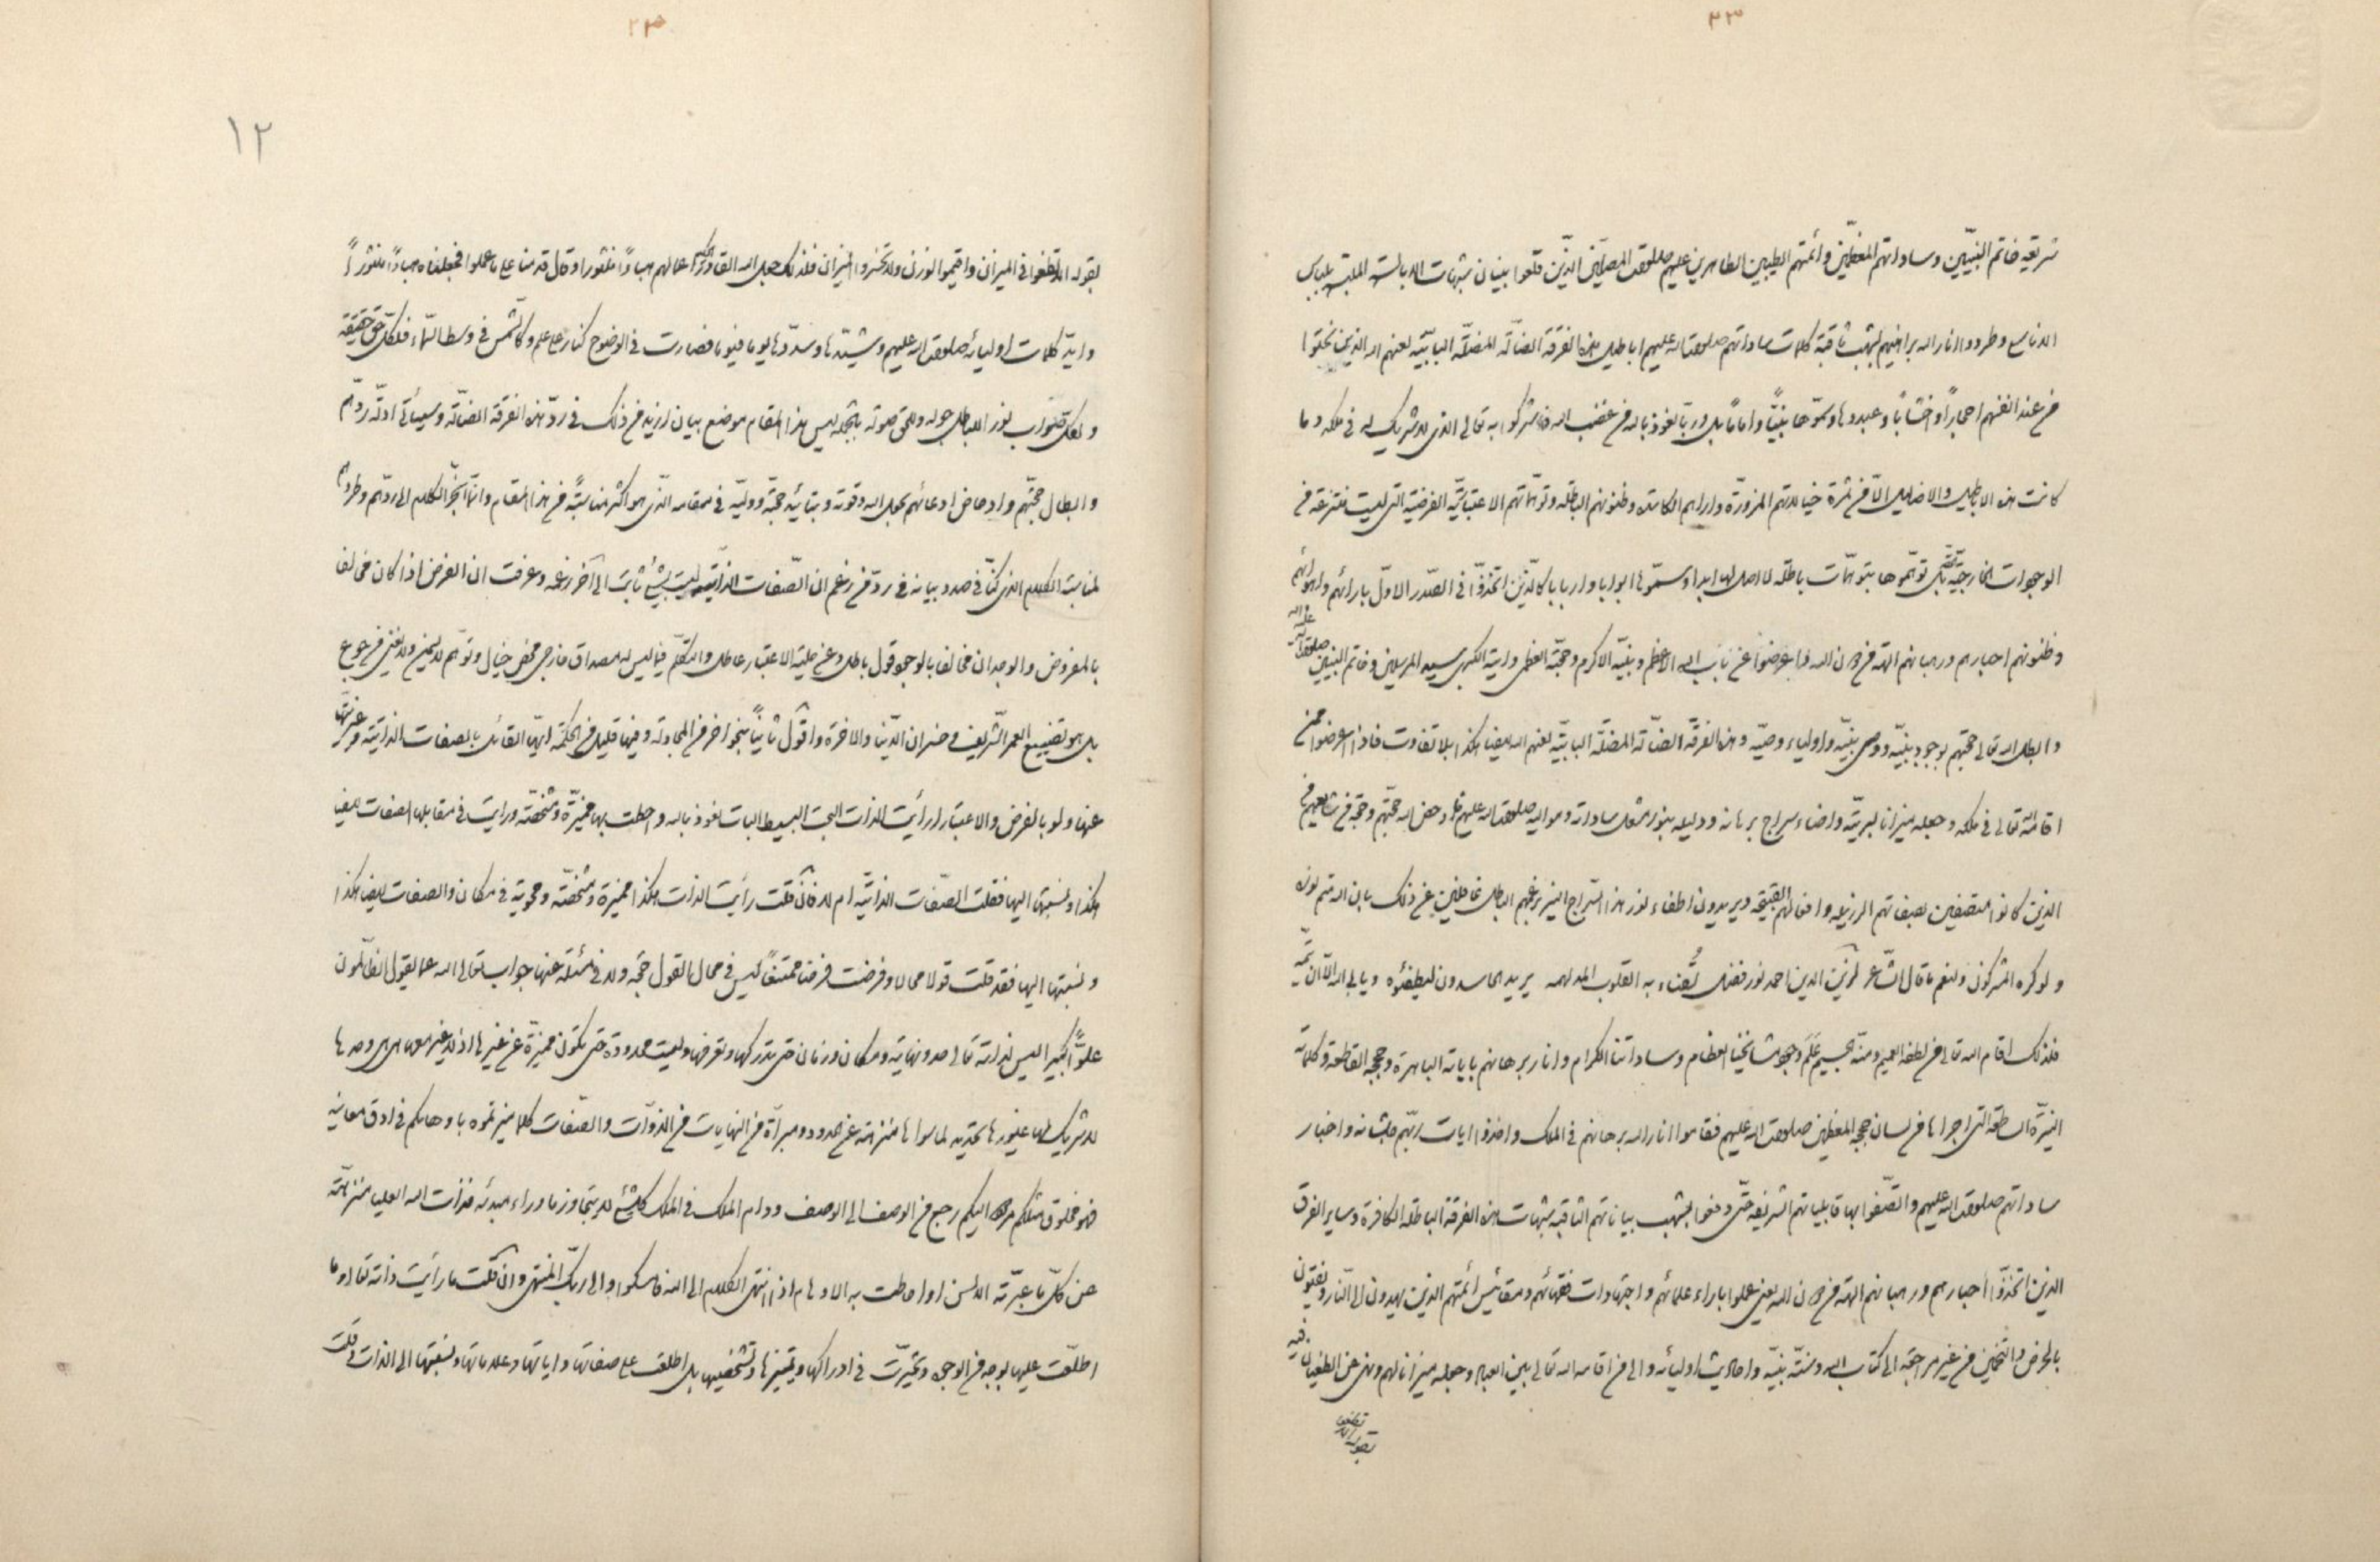 ٢٣
شريعة خاتم النبيّين وساداتهم المعظّمين وأئمتهم الطيبين الطاهرين عليهم صلوات المصلّين الذين قلعوا بنيان شبهات الابالسة الملبّسة بلباس
الناس وطردوا انار الله براهينهم بشهب ثاقبة كلمات ساداتهم صلوات الله عليهم اباطيل هذه الفرقة الضالّة المضلّة البابيّة لعنهم الله الذين نحتوا
من عند انفسهم احجاراً واخشاباً وعبدوها وسمّوها نبيّاً واماماً بل وربّا نعوذ بالله من غضب الله فاشركوا به تعالى الذي لا شريك له في ملكه وما
كانت هذه الاباطيل والاضاليل الّا من ثمرة خيالاتهم المزوّرة واراءهم الكاسدة وظنونهم الباطلة وتوهّماتهم الاعتباريّة الفرضية التي ليست منتزعة من
الوجودات الخارجيّة بل توهّموها بتوهّمات باطلة لا اصل لها ابدا وسمّوها ابوابا واربابا كالّذين اتخذوا في الصّدر الاوّل بارائهم واهوائهم
وظنونهم احبارهم ورهبانهم الهة من دون الله واعرضوا عن باب الله الاعظم ونبيّه الاكرم وحجّته العظمى وايته الكبرى سيد المرسلين وخاتم النبيين صلوات الله عليه واله
وابطل الله تعالى حجتهم بوجود نبيّه ووصى نبيّه واولياء وصيّه وهذه الفرقة الضالّة المضلّة البابيّة لعنهم الله ايضا هكذا بلا تفاوت فاذا اعرضوا عمن
اقامه الله تعالى في ملكه وجعله ميزانا لبريّته واضاء سراج برهانه ودليله بنور مشعل ساداته ومواليه صلوات الله عليهم فادحض الله حجّتهم وحجة من شايعهم من
الذين كانوا متصفين بصفاتهم الرذيلة وافعالهم القبيحة ويريدون اطفاء نور هذا السّراج المنير بزعمهم الباطل غافلين عن ذلك بان الله متم نوره
ولو كره المشركون ولنعم ما قال الشّاعر لزين الدين احمد نور فضل تُضاء به القلوب المدلهمه يريد الحاسدون ليطفئوه ويابى الله الّا ان يتمّه
فلذلك اقام الله تعالى من لطفه العميم ومنّه الجسيم عَلَم وجود مشايخنا العظام وساداتنا الكرام وانار برهانهم باياته الباهرة وحججه القاطعة وكلماته
النيرّة الساطعة التي اجراها من لسان حججه المعظمين صلوات الله عليهم فقاموا انار الله برهانهم في الملك واخذوا ايات ربّهم جلّ شانه واخبار
ساداتهم صلوات الله عليهم واتّصفوا بها قابلياتهم الشريفة حتّى دفعوا بشهب بياناتهم الثاقبة شبهات هذه الفرقة الباطلة الكافرة وساير الفرق
الذين اتخذوا احبارهم ورهبانهم الهة من دون الله يعني عملوا باراء علمائهم واجتهادات فقهائهم ومقائيس أئمتهم الذين يهدون الى النّار ويفتون
بالخرص والتخمين من غير مراجعة الى كتاب الله وسنّة نبيّه واحاديث اوليائه والى من اقامه الله تعالى بين العباد وجعله ميزانا لهم ونهى عن الطغيان فيه
بقوله ان لا تطغوا
٢٣
١٢
بقوله الّا تطغوا في الميزان واقيموا الوزن ولا تخسروا الميزان فلذلك جعل الله القادر الحكيم اعمالهم هباءً منثورا وقال قدمنا على ما عملوا فجعلناه هباءً منثوراً
وايّد كلمات اوليائه صلوات الله عليهم وشيّدها وسدّدها يوما فيوما فصارت في الوضوح كنار على علم وكالشّمس في وسط السّماء فلكلّ حق حقيقة
ولكل صَواب نور للباطل جولة وللحق صولة بالجملة ليس هذا المقام موضع بيان ازيد من ذلك في ردّ هذه الفرقة الضالّة وسيأتي ادلّة ردّهم
وابطال حجّتهم وادحاض ادعائهم بحول الله وقوته وبتائيد حجّته ووليّه في مقامه الّذي هو اكثر مناسبةً من هذا المقام وانّما انجرّ الكلام الى ردّهم وطردهم
لمناسبة الكلام الذي كنّا في صدد بيانه في ردّ من زعم ان الصّفات الذّاتيّة ليست بشيء ثابت الى آخر زعمه وعرفت ان الفرض اذا كان مخالفا
بالمفروض والوجدان مخالفا بالوجود قول باطل وعن حلية الاعتبار عاطل والتكلّم فيما ليس له مصداق خارجي محض خيال وتوهّم لا يسمن ولا يغني من جوع
بل هو تضييع العمر الشّريف وخسران الدّنيا والاخرة واقول ثانياً بنحو اخر من المجادلة وفيها قليل من الحكمة ايّها القائل بالصفات الذاتيّة وغيريّتها
عنها ولو بالفرض والاعتبار ارأيت الذات البحت البسيط البات نعوذ بالله واحطت بها مميزّة ومشخّصة ورايت في مقابلها الصفات ايضا
هكذا ونسبتها اليها فقلت الصّفات الذاتيّة ام لا فان قلت رأيت الذات هكذا مميزة ومشخّصة ومحوية في مكان والصفات ايضا هكذا
ونسبتها اليها فقد قلت قولا محالا وفرضت فرضا ممتنعاً ليس في محال القول حجّة ولا في المسئلة عنها جواب تعالى الله عما يقول الظالمون
علوّاً كبيرا ليس لذاته تعالى حد ونهاية ومكان وزمان حتى تدركها وتعرفها وليست محدودة حتى تكون مميزّة عن غيرها اذ لا غير معها هي هي وحدها
لا شريك لها غيورها تحديد لما سواها منزهة عن الحدود ومبرأة من النهايات من الذوّات والصّفات كلما ميزتموه باوهامكم في ادق معانيه
فهو مخلوق مثلكم مردود اليكم رجع من الوصف الى الوصف ودام الملك في الملك كل شيء لا يتجاوز ما وراء مبدئه فذات الله العليا منزّهة
عن كلّ ما عبرّته الالسن او احاطت به الاوهام اذا انتهى الكلام الى الله فامسكوا والى ربّك المنتهى وان قلت ما رأيت ذاته تعالى وما
اطلّعت عليها بوجه من الوجوه وتحيّرت في ادراكها وتمييزها وتشخيصها بل اطلعت على صفاتها واياتها وعلاماتها ونسبتها الى الذات قلت